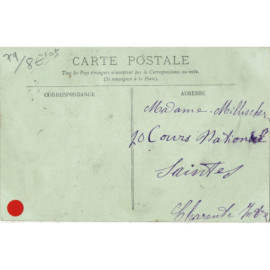 CARTE POSTALE
Tous les Pays étrangers n'acceptent pas la Correspondance au recto.
(Se renseigner à la Poste).
CORRESPONDANCE
ADRESSE
Madame Millischer
20 Cours National
Saintes
Charente